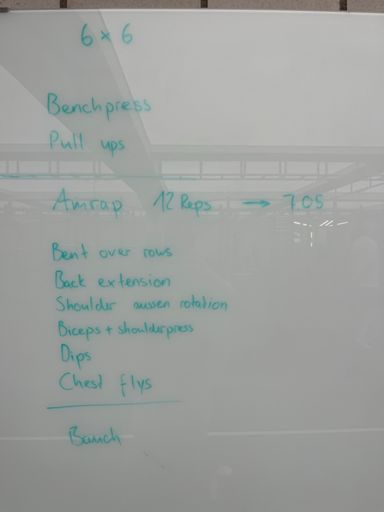 6 x 6
Benchpress
Pull ups
Amrap 12 Reps → 7.05
Bent over rows
Back extension
Shoulder aussen rotation
Biceps + shoulderpress
Dips
Chest flys
Bauch